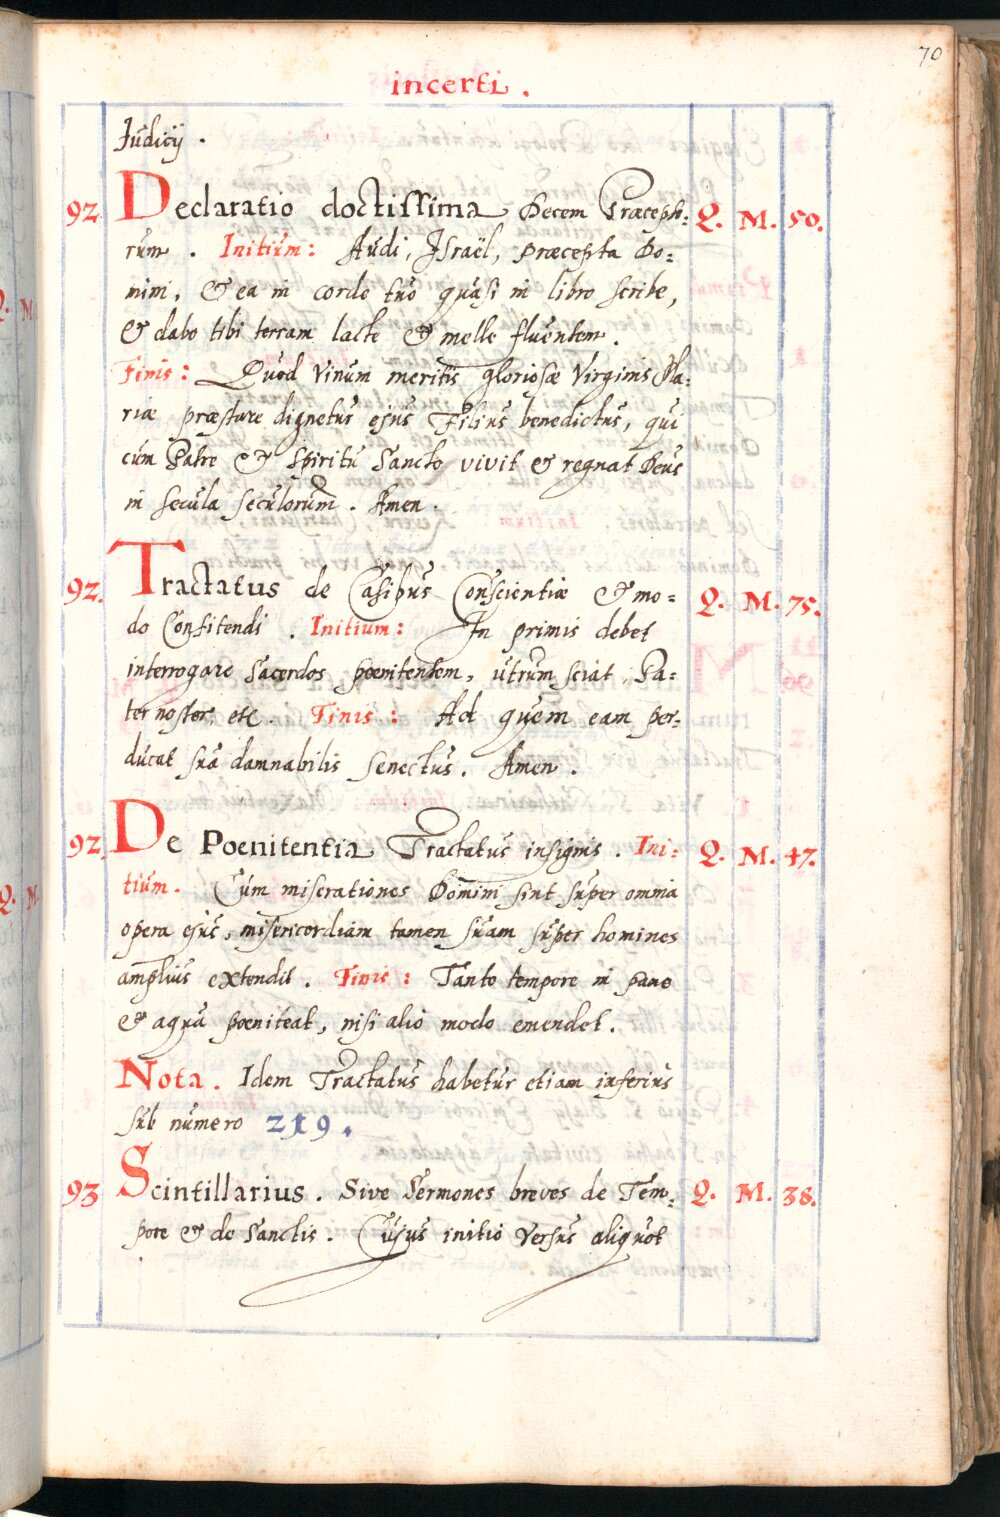 70
incerti.
Judicij.
92 Declaratio doctissima Decem Præcepto- Q. M. 50.
rum. Initium: Audi, Israël, præcepta Do-
mini, & ea in corde tuo quasi in libro scribe,
& dabo tibi terram lacte & melle fluentem.
Finis: Quod vinum meritis gloriosæ Virginis Ma-
riæ præstare dignetur ejus Filius benedictus, qui
cum Patre & Spiritu Sancto vivit & regnat Deus
in secula seculorum. Amen.
92. Tractatus de Casibus Conscientiæ & mo- Q. M. 75.
do Confitendi. Initium: In primis debet
interrogare Sacerdos poenitentem, utrum sciat Pa-
ter noster, etc. Finis: Ad quem eam per-
ducat sua damnabilis senectus. Amen.
92. De Poenitentia Tractatus insignis. Ini- Q. M. 47.
tium. Cum miserationes Domini sint super omnia
opera ejus, misericordiam tamen suam super homines
amplius extendit. Finis: Tanto tempore in pane
& aqua poeniteat, nisi alio modo emendet.
Nota. Idem Tractatus habetur etiam inferius
sub numero 219.
93 Scintillarius. Sive Sermones breves de Tem- Q. M. 38.
pore & de Sanctis. Cujus initio versus aliquot